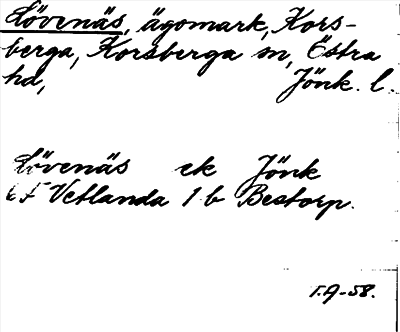 Lövenäs, ägomark, Kors-
berga, Korsberga sn, Östra
hd, Jönk. l.
Lövenäs ek Jönk
6F Vetlanda 1 b Bestorp.
T.A-58.